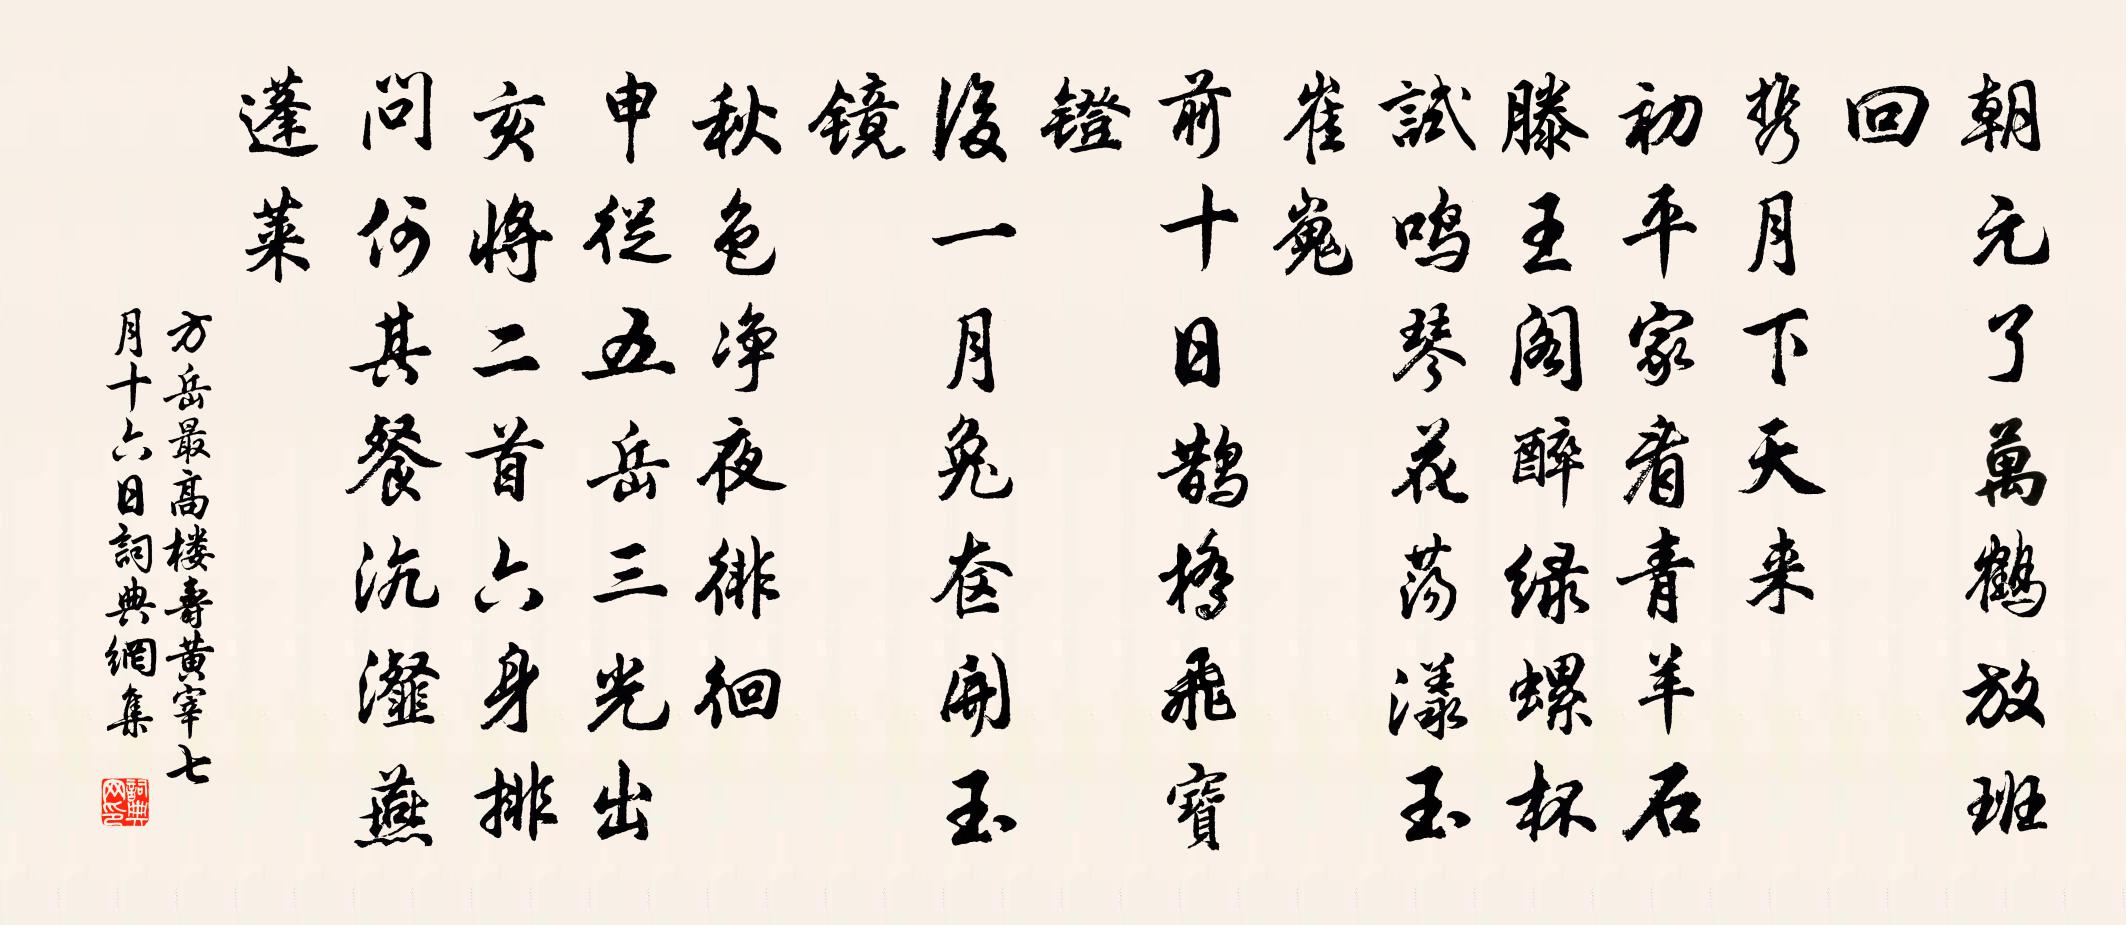 朝元了萬鶴放班
回
携月下天来
初平家看青羊石
滕王阁醉绿螺杯
試鸣琴花荡漾玉
崔嵬
前十日鹊橋飛寶
镫
後一月兔奁開玉
镜
秋色净夜徘徊
申從五岳三光出
亥將二首六身排
問何其餐沆瀣燕
蓬莱
方岳最高楼壽黄宰七
月十六日詞典網集
詞典网印